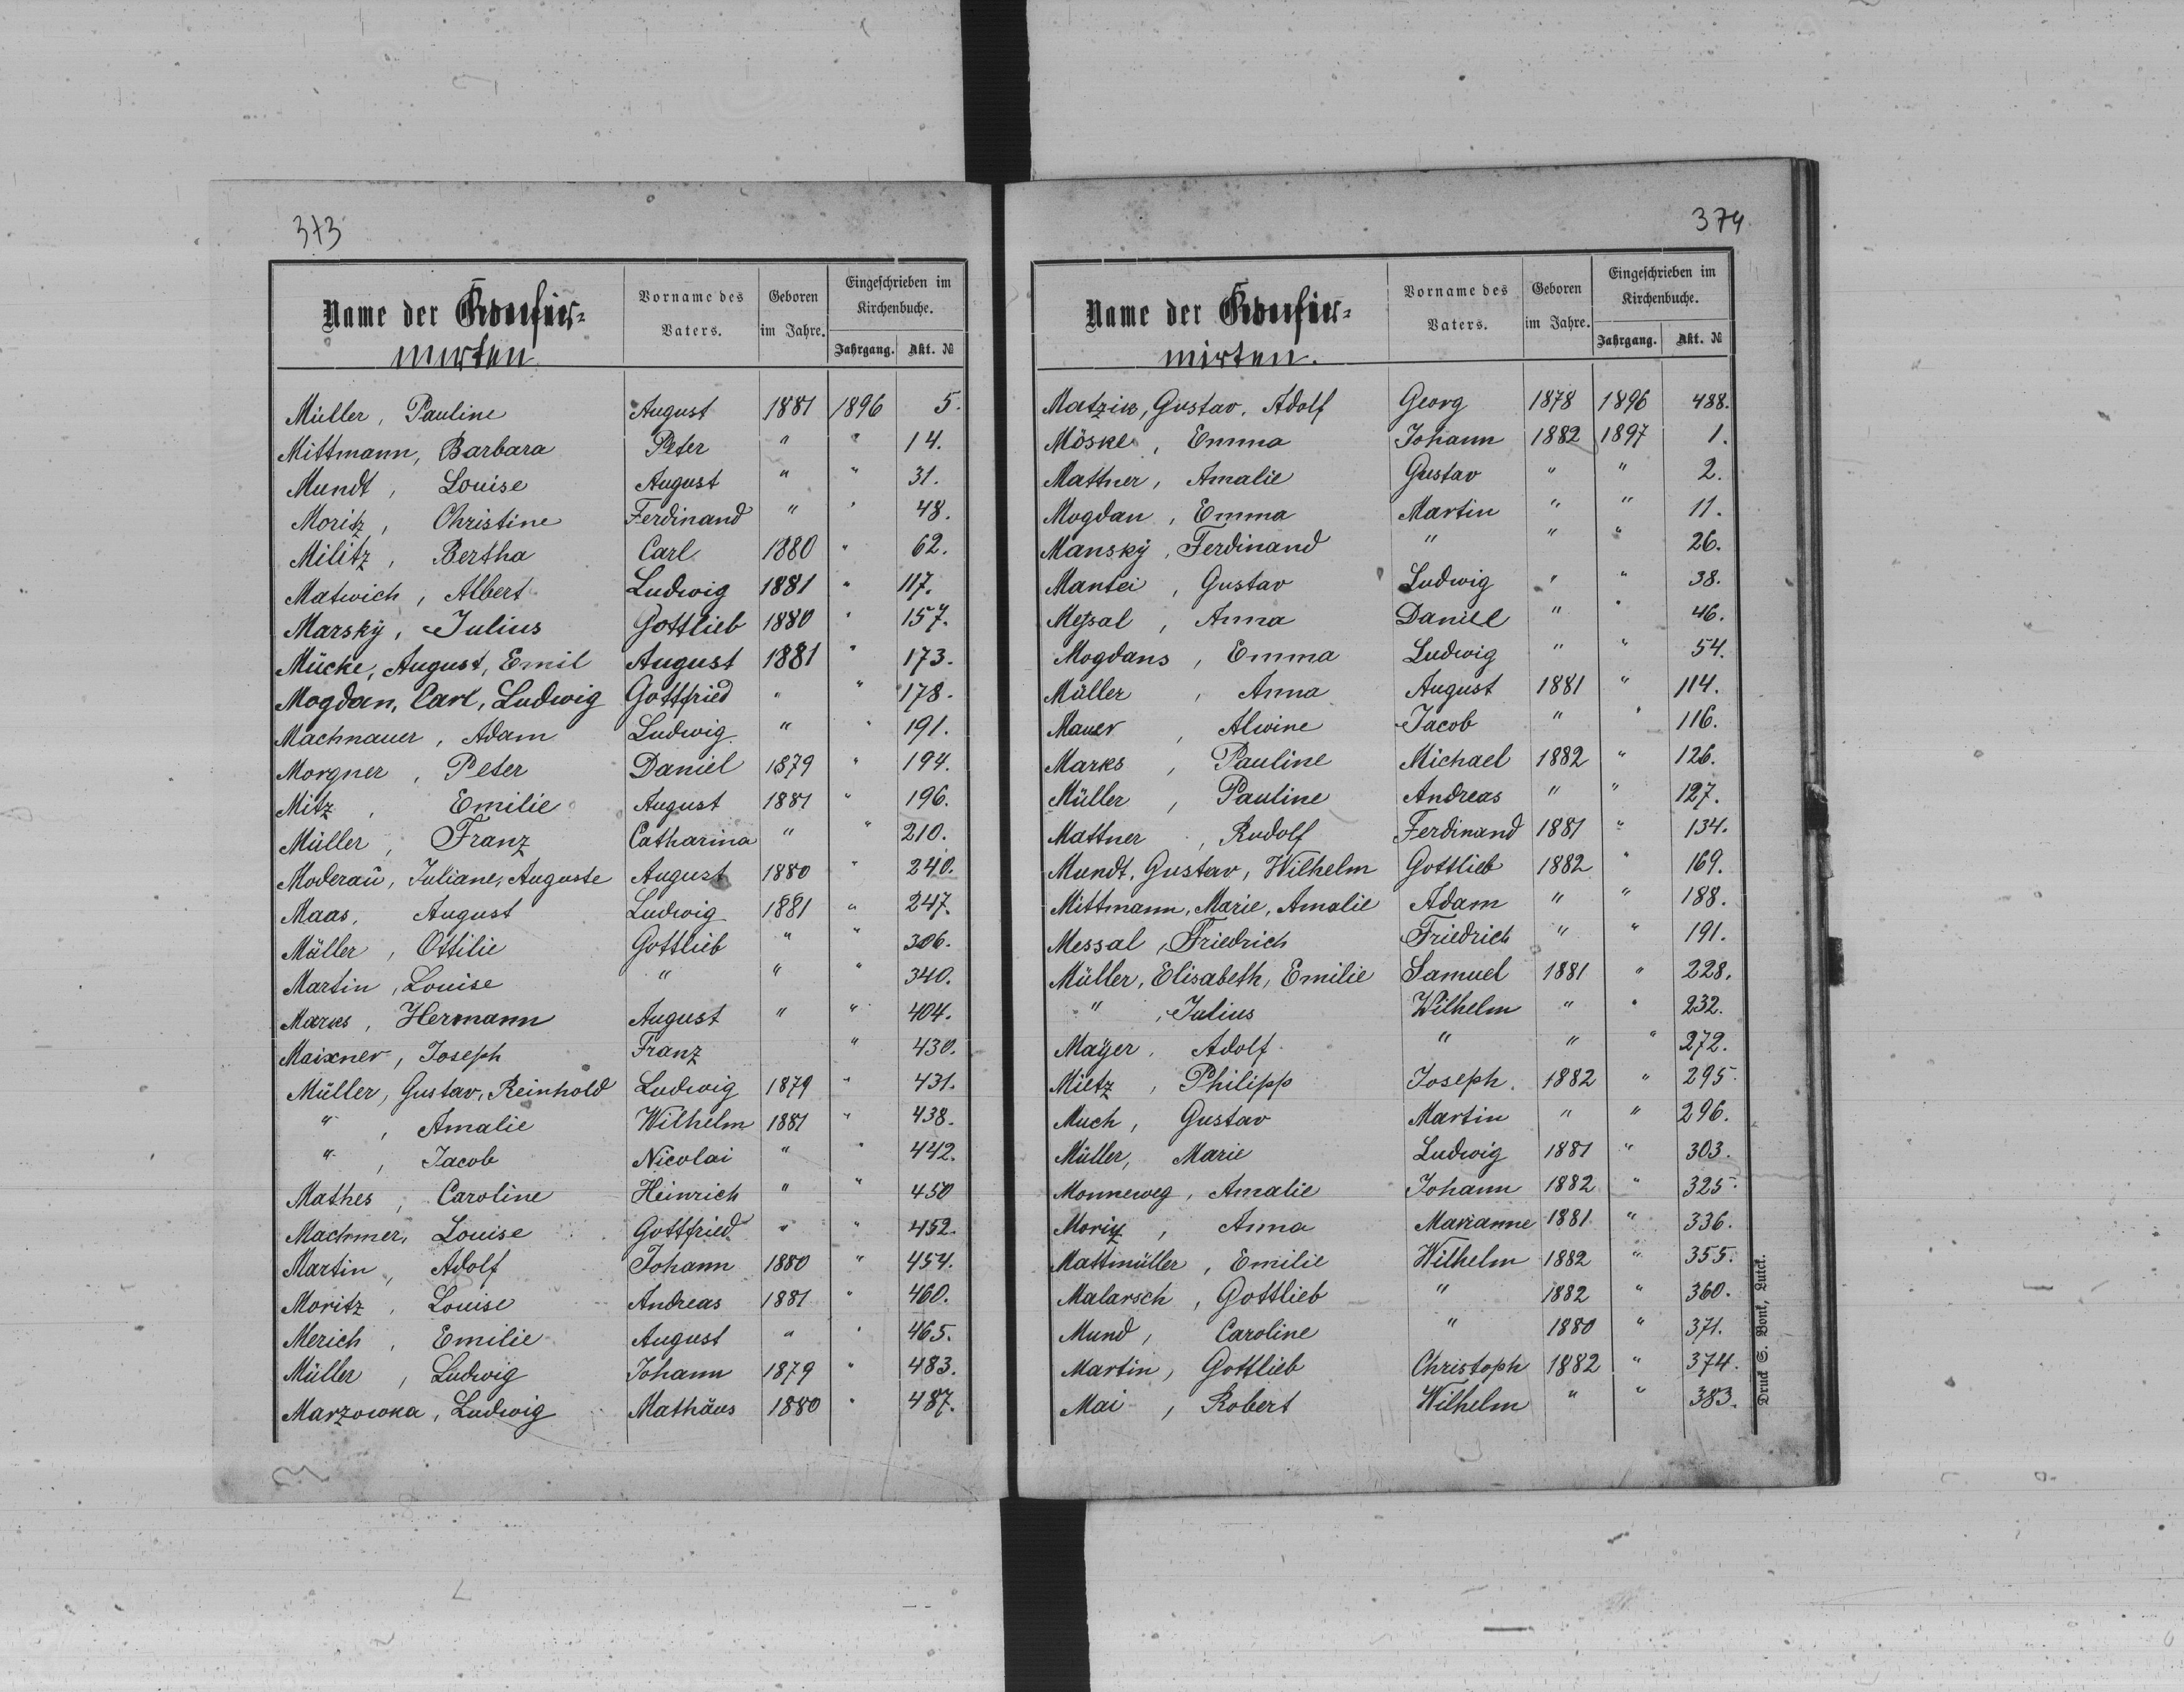 373
Name der Konfir=
mirten
Vorname des Vaters.
Geboren im Jahre.
Eingeschrieben im Kirchenbuche.
Jahrgang. Akt. №
Müller, Pauline August 1881 1896 5.
Mittmann, Barbara Peter " " 14.
Mundt, Louise August " " 31.
Moritz, Christine Ferdinand " " 48.
Militz, Bertha Carl 1880 " 62.
Matwich, Albert Ludwig 1881 " 117.
Marsky, Julius Gottlieb 1880 " 157.
Mücke, August, Emil August 1881 " 173.
Mogdan, Carl, Ludwig Gottfried " " 178.
Machnauer, Adam Ludwig " " 191.
Morgner, Peter Daniel 1879 " 194.
Mitz, Emilie August 1881 " 196.
Müller, Franz Catharina " " 210.
Moderau, Juliane, Auguste August 1880 " 240.
Maas, August Ludwig 1881 " 247.
Müller, Ottilie Gottlieb " " 306.
Martin, Louise " " " 340.
Marks, Hermann August " " 404.
Maixner, Joseph Franz " 430.
Müller, Gustav, Reinhold Ludwig 1879 " 431.
" , Amalie Wilhelm 1881 " 438.
" , Jacob Nicolai " " 442.
Mathes, Caroline Heinrich " " 450
Machmer, Louise Gottfried " " 452.
Martin, Adolf Johann 1880 " 454.
Moritz, Louise Andreas 1881 " 460.
Merich, Emilie August " " 465.
Müller, Ludwig Johann 1879 " 483.
Marzowka, Ludwig Mathäus 1880 " 487.
374
Name der Konfir=
mirten.
Vorname des Vaters.
Geboren im Jahre.
Eingeschrieben im Kirchenbuche.
Jahrgang. Akt. №
Matzik, Gustav, Adolf Georg 1878 1896 488.
Möske, Emma Johann 1882 1897 1.
Mattner, Amalie Gustav " " 2.
Mogdan, Emma Martin " " 11.
Mansky, Ferdinand " " " 26.
Mantei, Gustav Ludwig " " 38.
Meßal, Anna Daniel " " 46.
Mogdans, Emma Ludwig " " 54.
Müller, Anna August 1881 " 114.
Mauer, Alwine Jacob " " 116.
Marks, Pauline Michael 1882 " 126.
Müller, Pauline Andreas " " 127.
Mattner, Rudolf Ferdinand 1881 " 134.
Mundt, Gustav, Wilhelm Gottlieb 1882 " 169.
Mittmann, Marie, Amalie Adam " " 188.
Messal, Friedrich Friedrich " " 191.
Müller, Elisabeth, Emilie Samuel 1881 " 228.
" , Julius Wilhelm " " 232.
Mayer, Adolf " " " 272.
Mietz, Philipp Joseph. 1882 " 295.
Much, Gustav Martin " " 296.
Müller, Marie Ludwig 1881 " 303.
Monneweg, Amalie Johann 1882 " 325.
Moritz, Anna Marianne 1881 " 336.
Mattmüller, Emilie Wilhelm 1882 " 355.
Malarsch, Gottlieb " 1882 " 360.
Mund, Caroline " 1880 " 371.
Martin, Gottlieb Christoph 1882 " 374.
Mai, Robert Wilhelm " " 383.
Druck S. Bonk, Lutck.